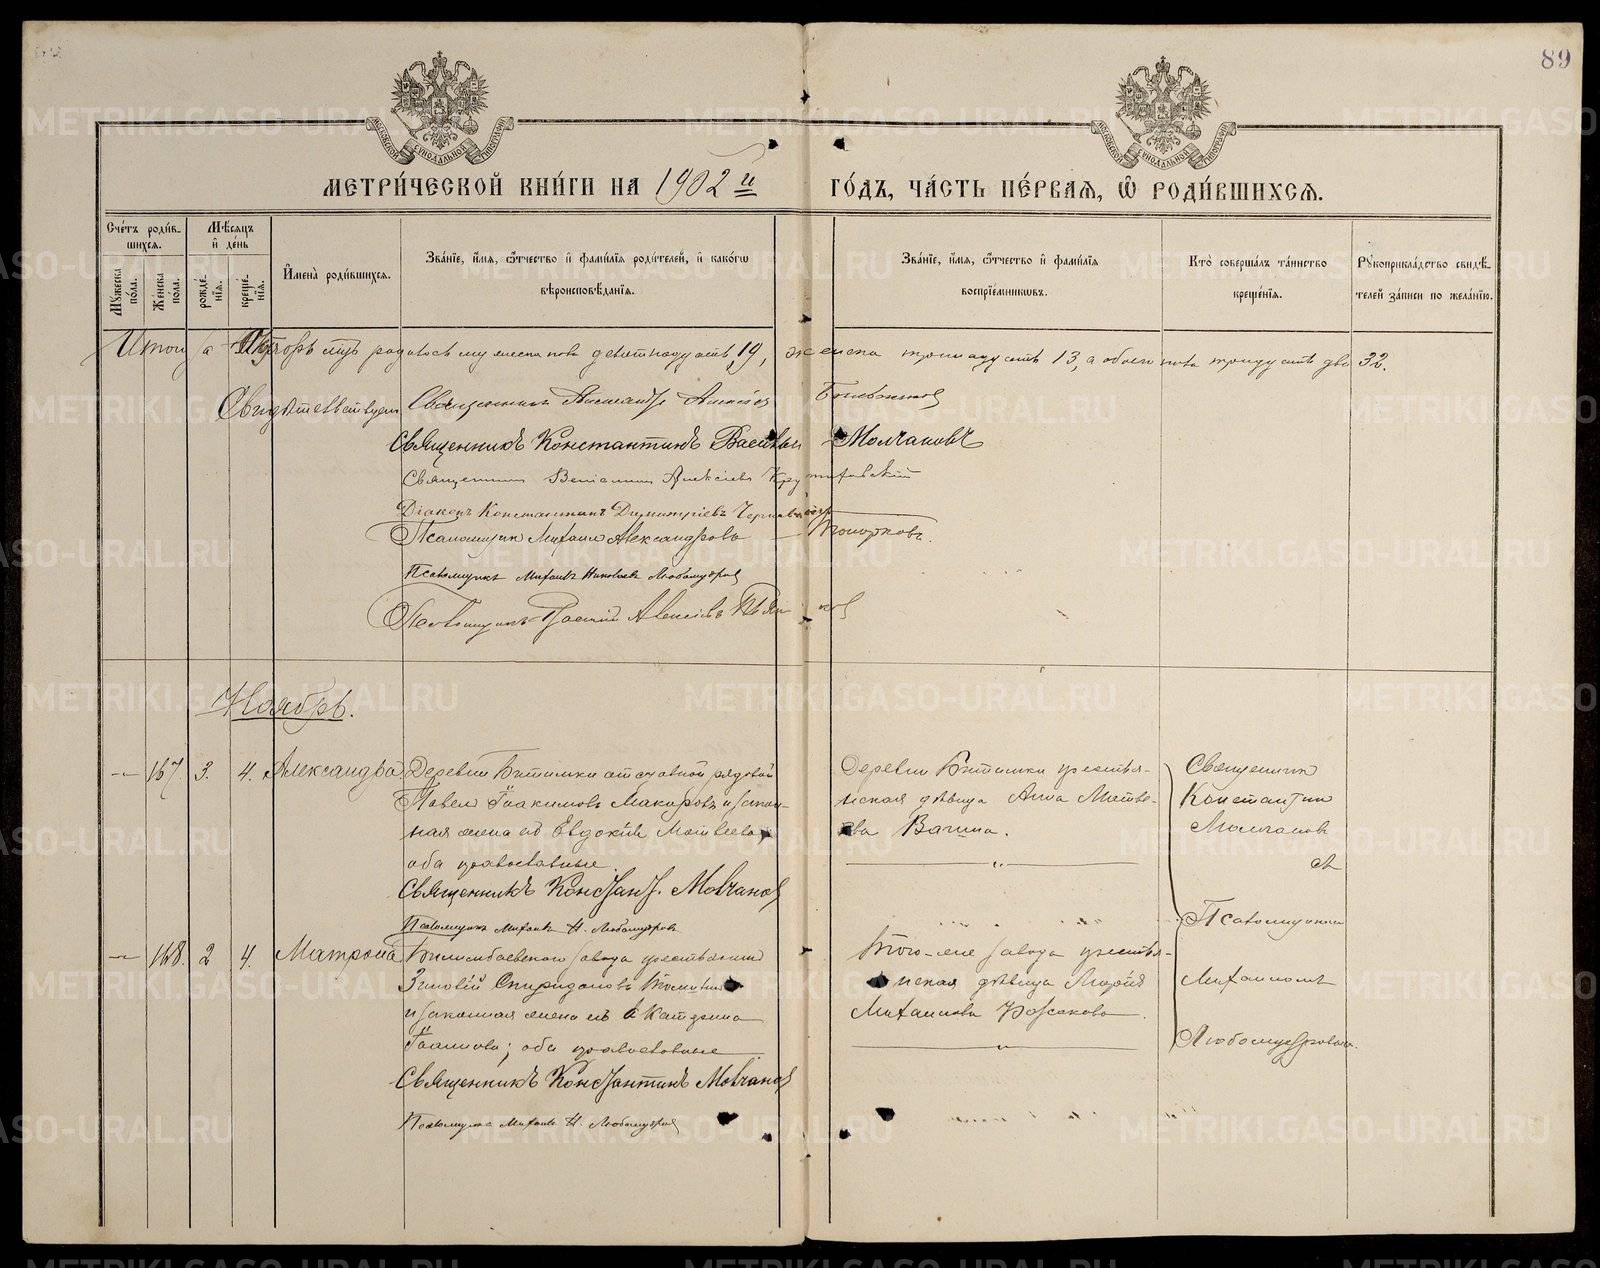 89
МОСКОВСКОЙ СѴНОДАЛЬНОЙ ТИПОГРАФІИ
МОСКОВСКОЙ СѴНОДАЛЬНОЙ ТИПОГРАФІИ
МЕТРИ́ЧЕСКОЙ КНИ́ГИ НА 1902 й ГО́ДЪ, ЧА́СТЬ ПЕ́РВАѦ, Ѡ҆ РОДИ́ВШИХСѦ.
Сче́тъ роди́в-
шихсѧ.
Мꙋжеска по́ла.
Же́нска по́ла.
Мѣ́сѧцъ и҆ де́нь
рожде́-нїѧ.
креще́-нїѧ.
И҆мена̀ роди́вшихсѧ.
Зва́нїе, и҆́мѧ, ѻ҆́тчество и҆ фами́лїѧ роди́телей, и҆ како́гѡ
вѣроисповѣ́данїѧ.
Зва́нїе, и҆́мѧ, ѻ҆́тчество и҆ фами́лїѧ
воспрїе́мникѡвъ.
Кто̀ соверша́лъ та́инство
креще́нїѧ.
Рꙋкоприкла́дство свидѣ́-
телей за́писи по жела́нїю.
Итого за Октябрь мѣс. родилось мужеска пола девятнадцать, 19, женска тринадцать 13, а обоего пола тридцать два 32.
Свидѣтельствуем Священникъ Александръ Алексѣев
Священникъ Константинъ Василіев Молчановъ
Священник Веніамин Алексіевъ
Діаконъ Константинъ Димитріевъ
Псаломщик Михаил Александровъ Топорковъ.
Псаломщикъ Михаилъ Николаевъ Любомудровъ
Псаломщикъ Алексіевъ
Ноябрь.
— 167. 3. 4. Александра Деревни Битимки отставной рядовой
Павелъ Іоакимовъ Макаровъ и закон-
ная жена его Евдокія Матвеева
оба православные.
Священникъ Констант. Молчанов
Псаломщикъ Михаилъ Н. Любомудровъ
Деревни Битимки крестья-
нская дѣвица Анна Матве-
ева Вагина.
Священник
Константин
Молчанов
съ
Псаломщиком
Михаиломъ
Любомудровым.
— 168. 2 4. Матрона Билимбаевского завода крестьянин
Зиновій Спиридоновъ
и законная жена его Екатерина
Іоаннова; оба православные
Священникъ Константинъ Молчанов
Псаломщикъ Михаилъ Н. Любомудров
Того-же завода крестья-
нская дѣвица Марія
Михаилова
METRIKI.GASO-URAL.RU